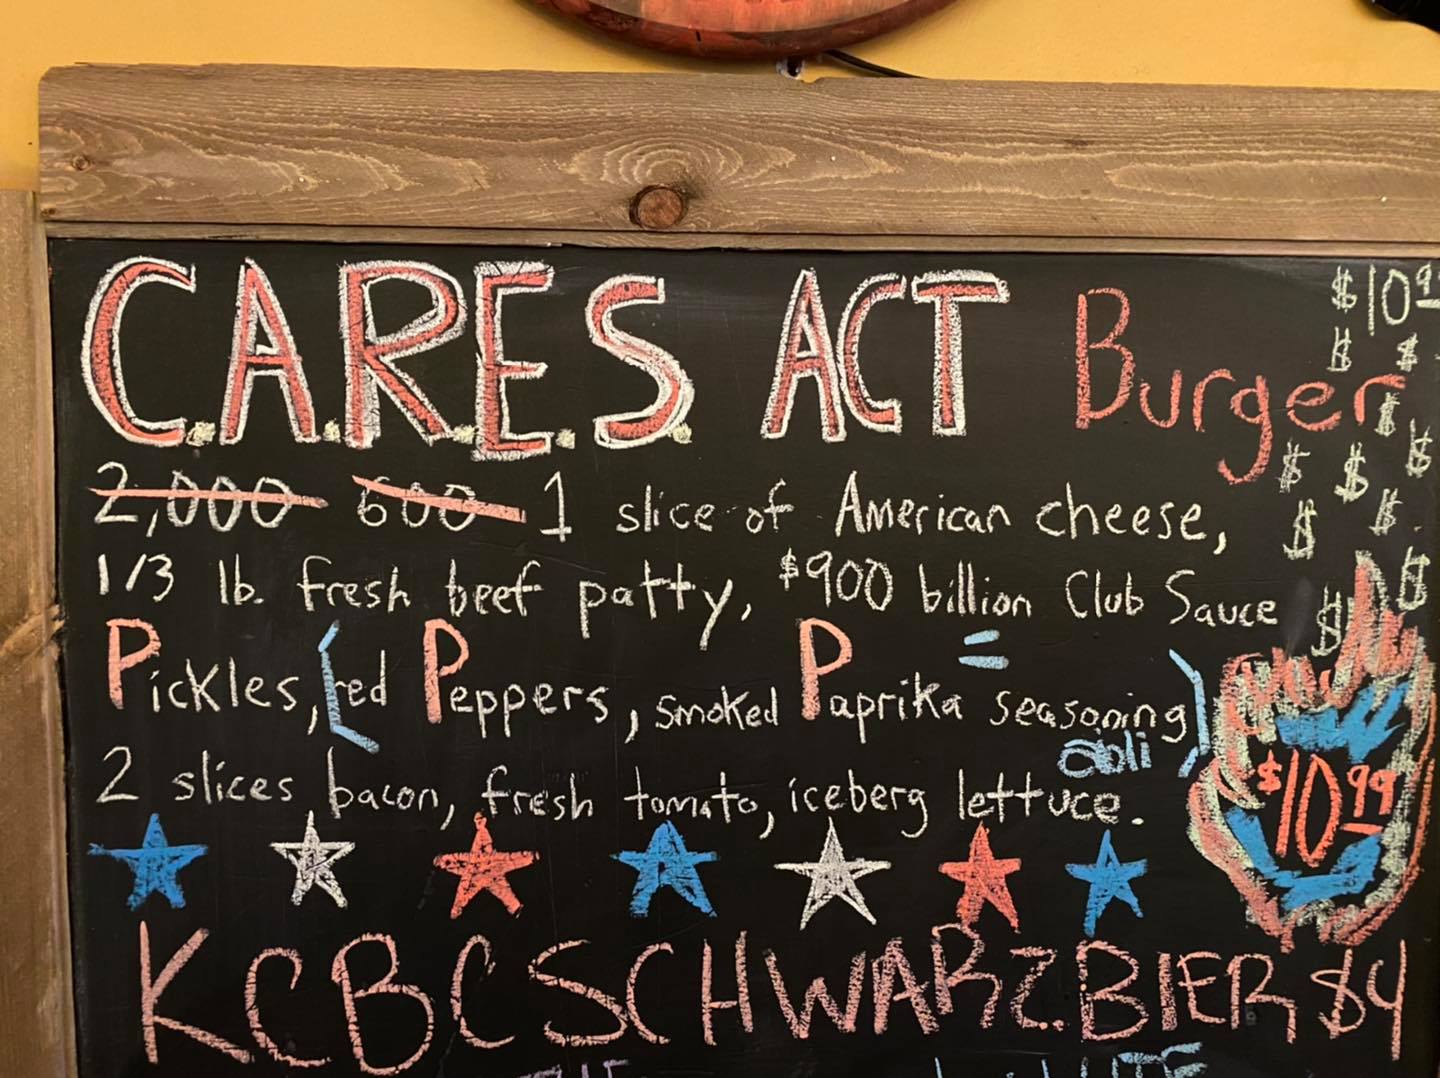 C.A.R.E.S. ACT Burger $10.99
2,000 600 1 slice of American cheese,
1/3 lb. fresh beef patty, $900 billion Club Sauce
Pickles, [red Peppers, smoked Paprika = seasoning]
aoli
2 slices bacon, fresh tomato, iceberg lettuce.
$10.99
KCBC SCHWARZ.BIER $4